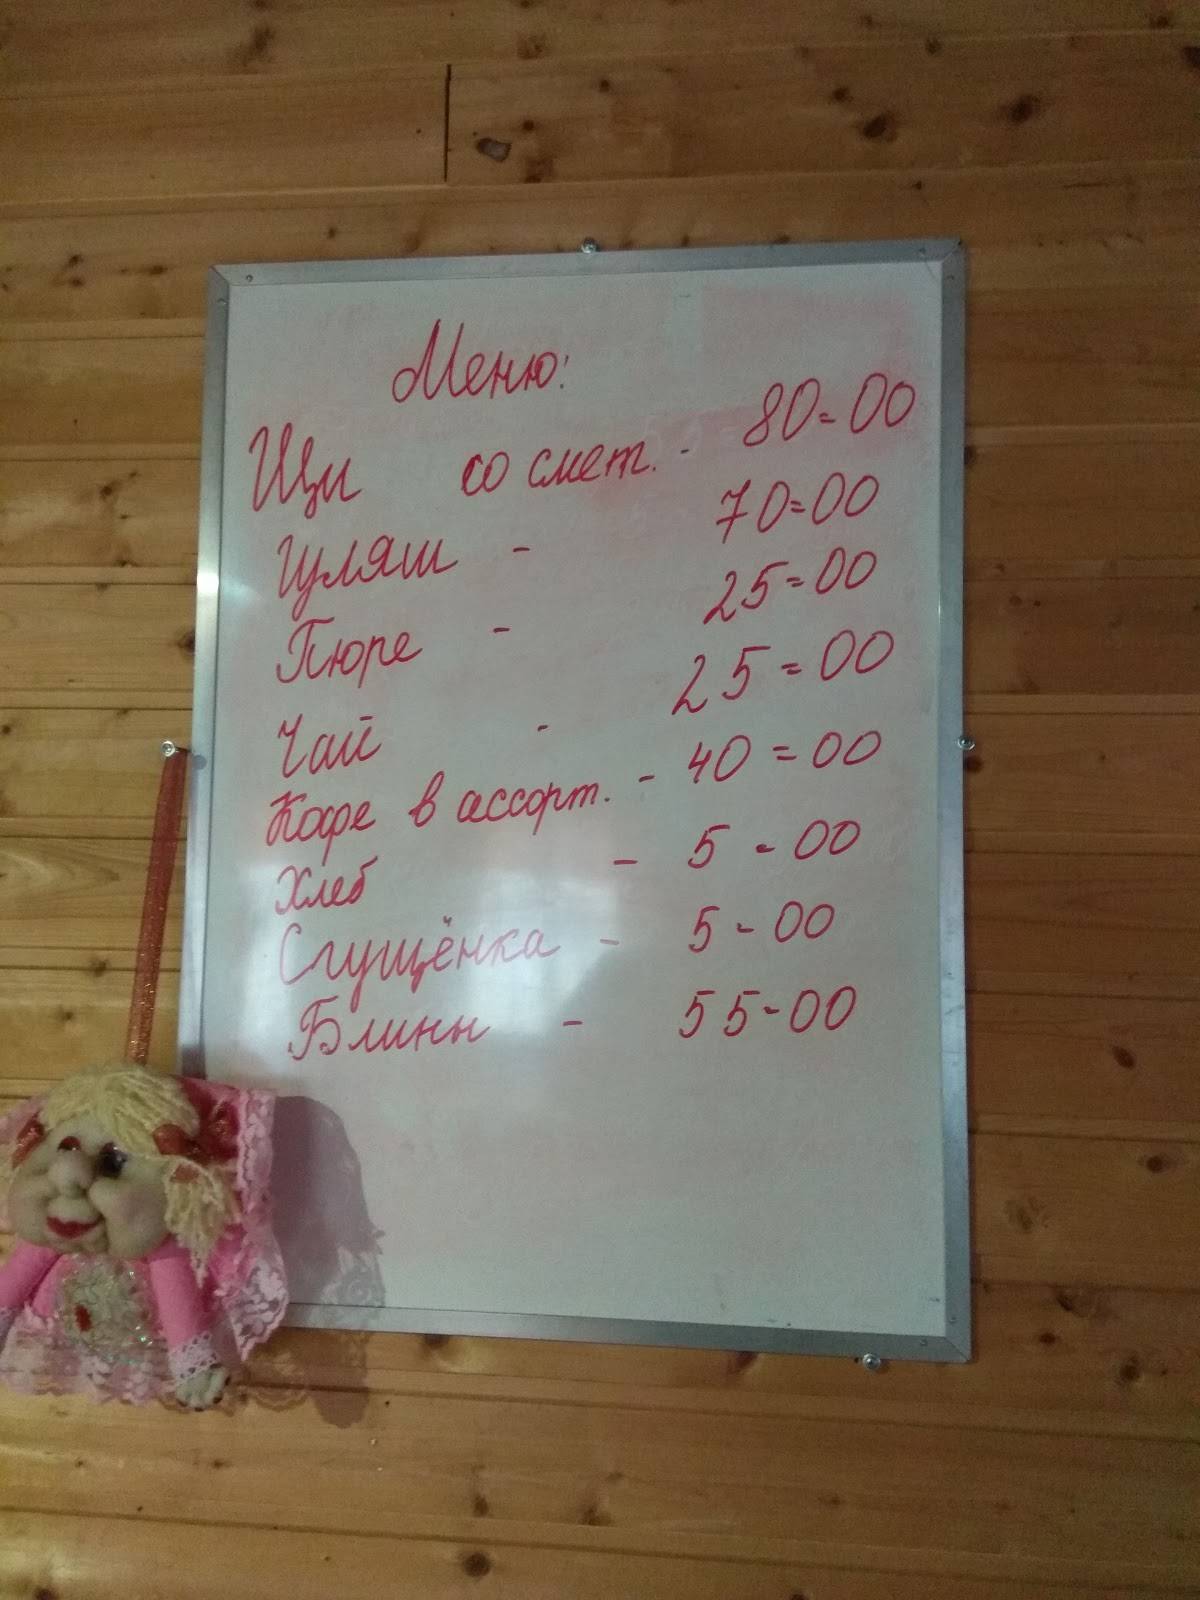 Меню:
Щи со смет. - 80=00
Гуляш - 70=00
Пюре - 25=00
Чай - 25=00
Кофе в ассорт. - 40=00
Хлеб - 5-00
Сгущёнка - 5-00
Блинн - 55-00